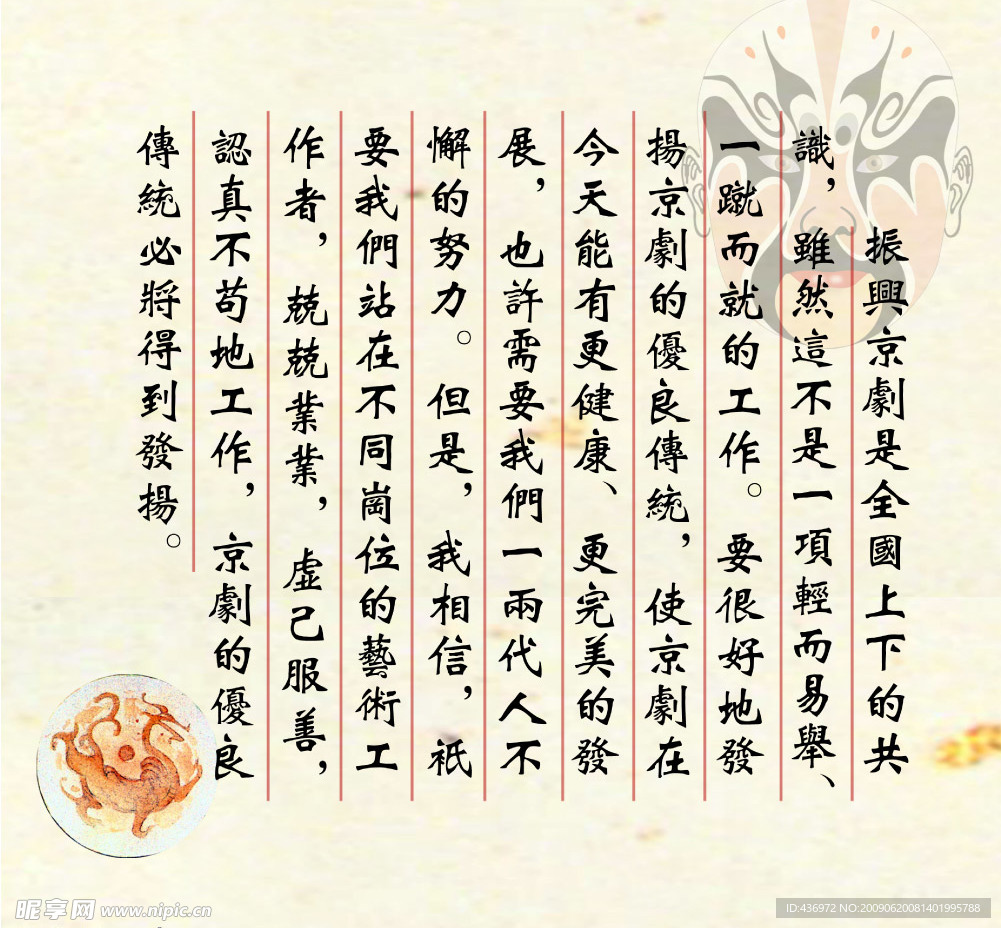 振興京劇是全國上下的共
識，雖然這不是一項輕而易舉、
一蹴而就的工作。要很好地發
揚京劇的優良傳統，使京劇在
今天能有更健康、更完美的發
展，也許需要我們一兩代人不
懈的努力。但是，我相信，祇
要我們站在不同崗位的藝術工
作者，兢兢業業，虛己服善，
認真不苟地工作，京劇的優良
傳統必將得到發揚。
昵享网 www.nipic.cn
ID:436972 NO:20090620081401995788